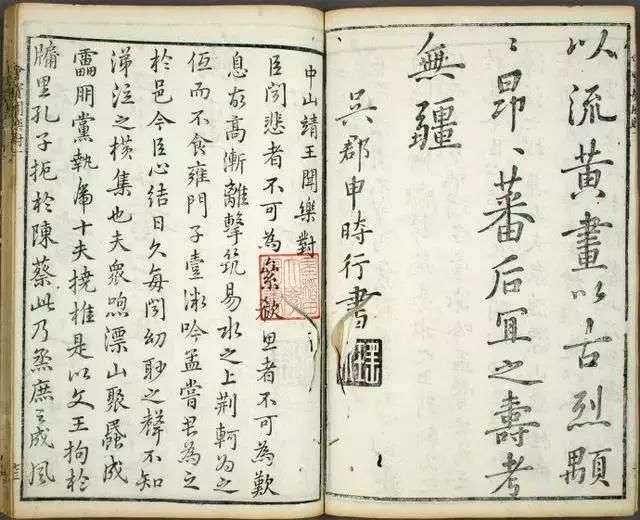 以流黃畫以古烈顒
〻昂〻蕃后宜之壽考
無疆
吳郡申時行書
中山靖王聞樂對
臣聞悲者不可為絫欷思者不可為歎
息故高漸離擊筑易水之上荊軻為之
低而不食雍門子壹微吟孟嘗君為之
於邑今臣心結日久每聞幼眇之聲不知
涕泣之橫集也夫眾喣漂山聚蟁成
靁朋黨執虎十夫橈椎是以文王拘於
牖里孔子扼於陳蔡此乃烝庶之成風